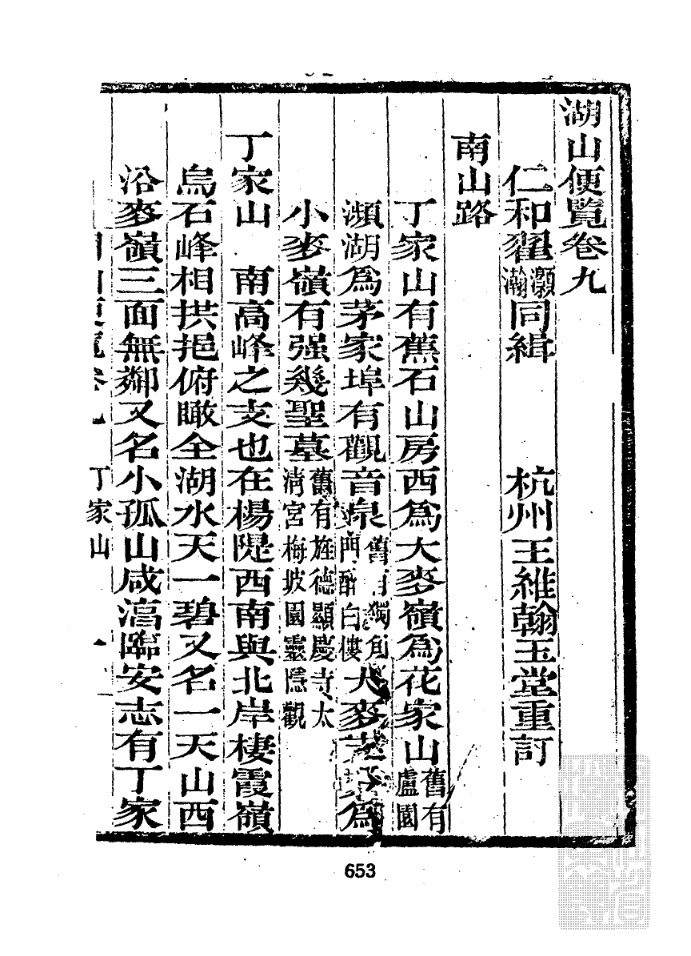 湖山便覽卷九
仁和翟灝瀚同緝 杭州王維翰玉堂重訂
南山路
丁家山有蕉石山房西爲大麥嶺爲花家山舊有盧園
瀕湖爲茅家埠有觀音泉舊有獨角門醉白樓大麥爲
小麥嶺有强幾聖墓舊有旌德顯慶寺太清宮梅坡園靈隱觀
丁家山 南高峰之支也在楊隄西南與北岸棲霞嶺
烏石峰相拱挹俯瞰全湖水天一碧又名一天山西
沿麥嶺三面無鄰又名小孤山咸湻臨安志有丁家
湖山便覽卷九 丁家山 一
653